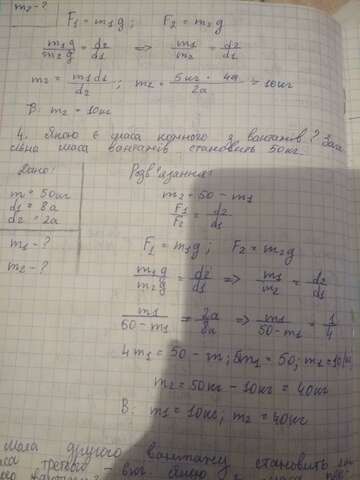 m2 - ?
F1 = m1g ; F2 = m2g
m1g/m2g = d2/d1 => m1/m2 = d2/d1
m2 = m1d1/d2 ; m2 = 5кг · 4а/2а = 10кг
В: m2 = 10кг
4. Якою є маса кожного з вантажів? Зага
льна маса вантажів становить 50кг.
Дано:
m = 50кг
d1 = 8а
d2 = 2а
m1 - ?
m2 - ?
Розв'язання:
m2 = 50 - m1
F1/F2 = d2/d1
F1 = m1g ; F2 = m2g
m1g/m2g = d2/d1 => m1/m2 = d2/d1
m1/50 - m1 = 2а/8а => m1/50 - m1 = 1/4
4m1 = 50 - m ; 5m1 = 50; m1 = 10кг
m2 = 50кг - 10кг = 40кг
В: m1 = 10кг, m2 = 40кг
маса другого вантажу становить
третього